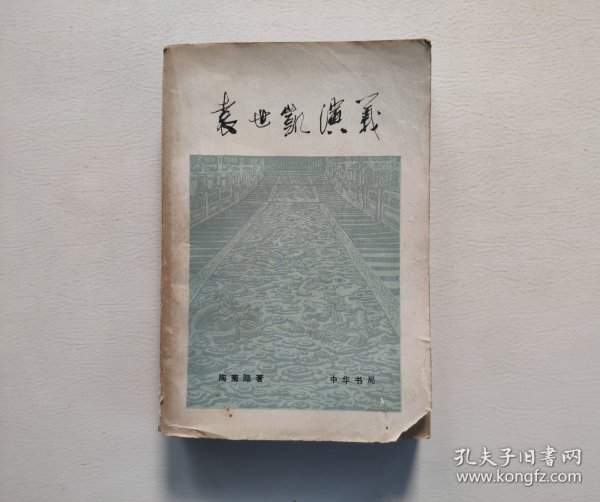 袁世凯演义
陶菊隐著
中华书局
孔夫子旧书网
www.kongfz.com